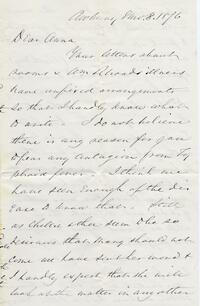 Dec. 8. 1876
Dear Anna
Your letters about
rooms & illness
have arrangements
so that I hardly know what
to write. I do not believe
there is any reason for your
any contagion from Ty
phoid fever. I think we
have seen enough of the dis
ease to know that. Still
as others seem so
desirous that Mary should not
come we have sent her word &
I hardly expect that she will
look at the matter in any other